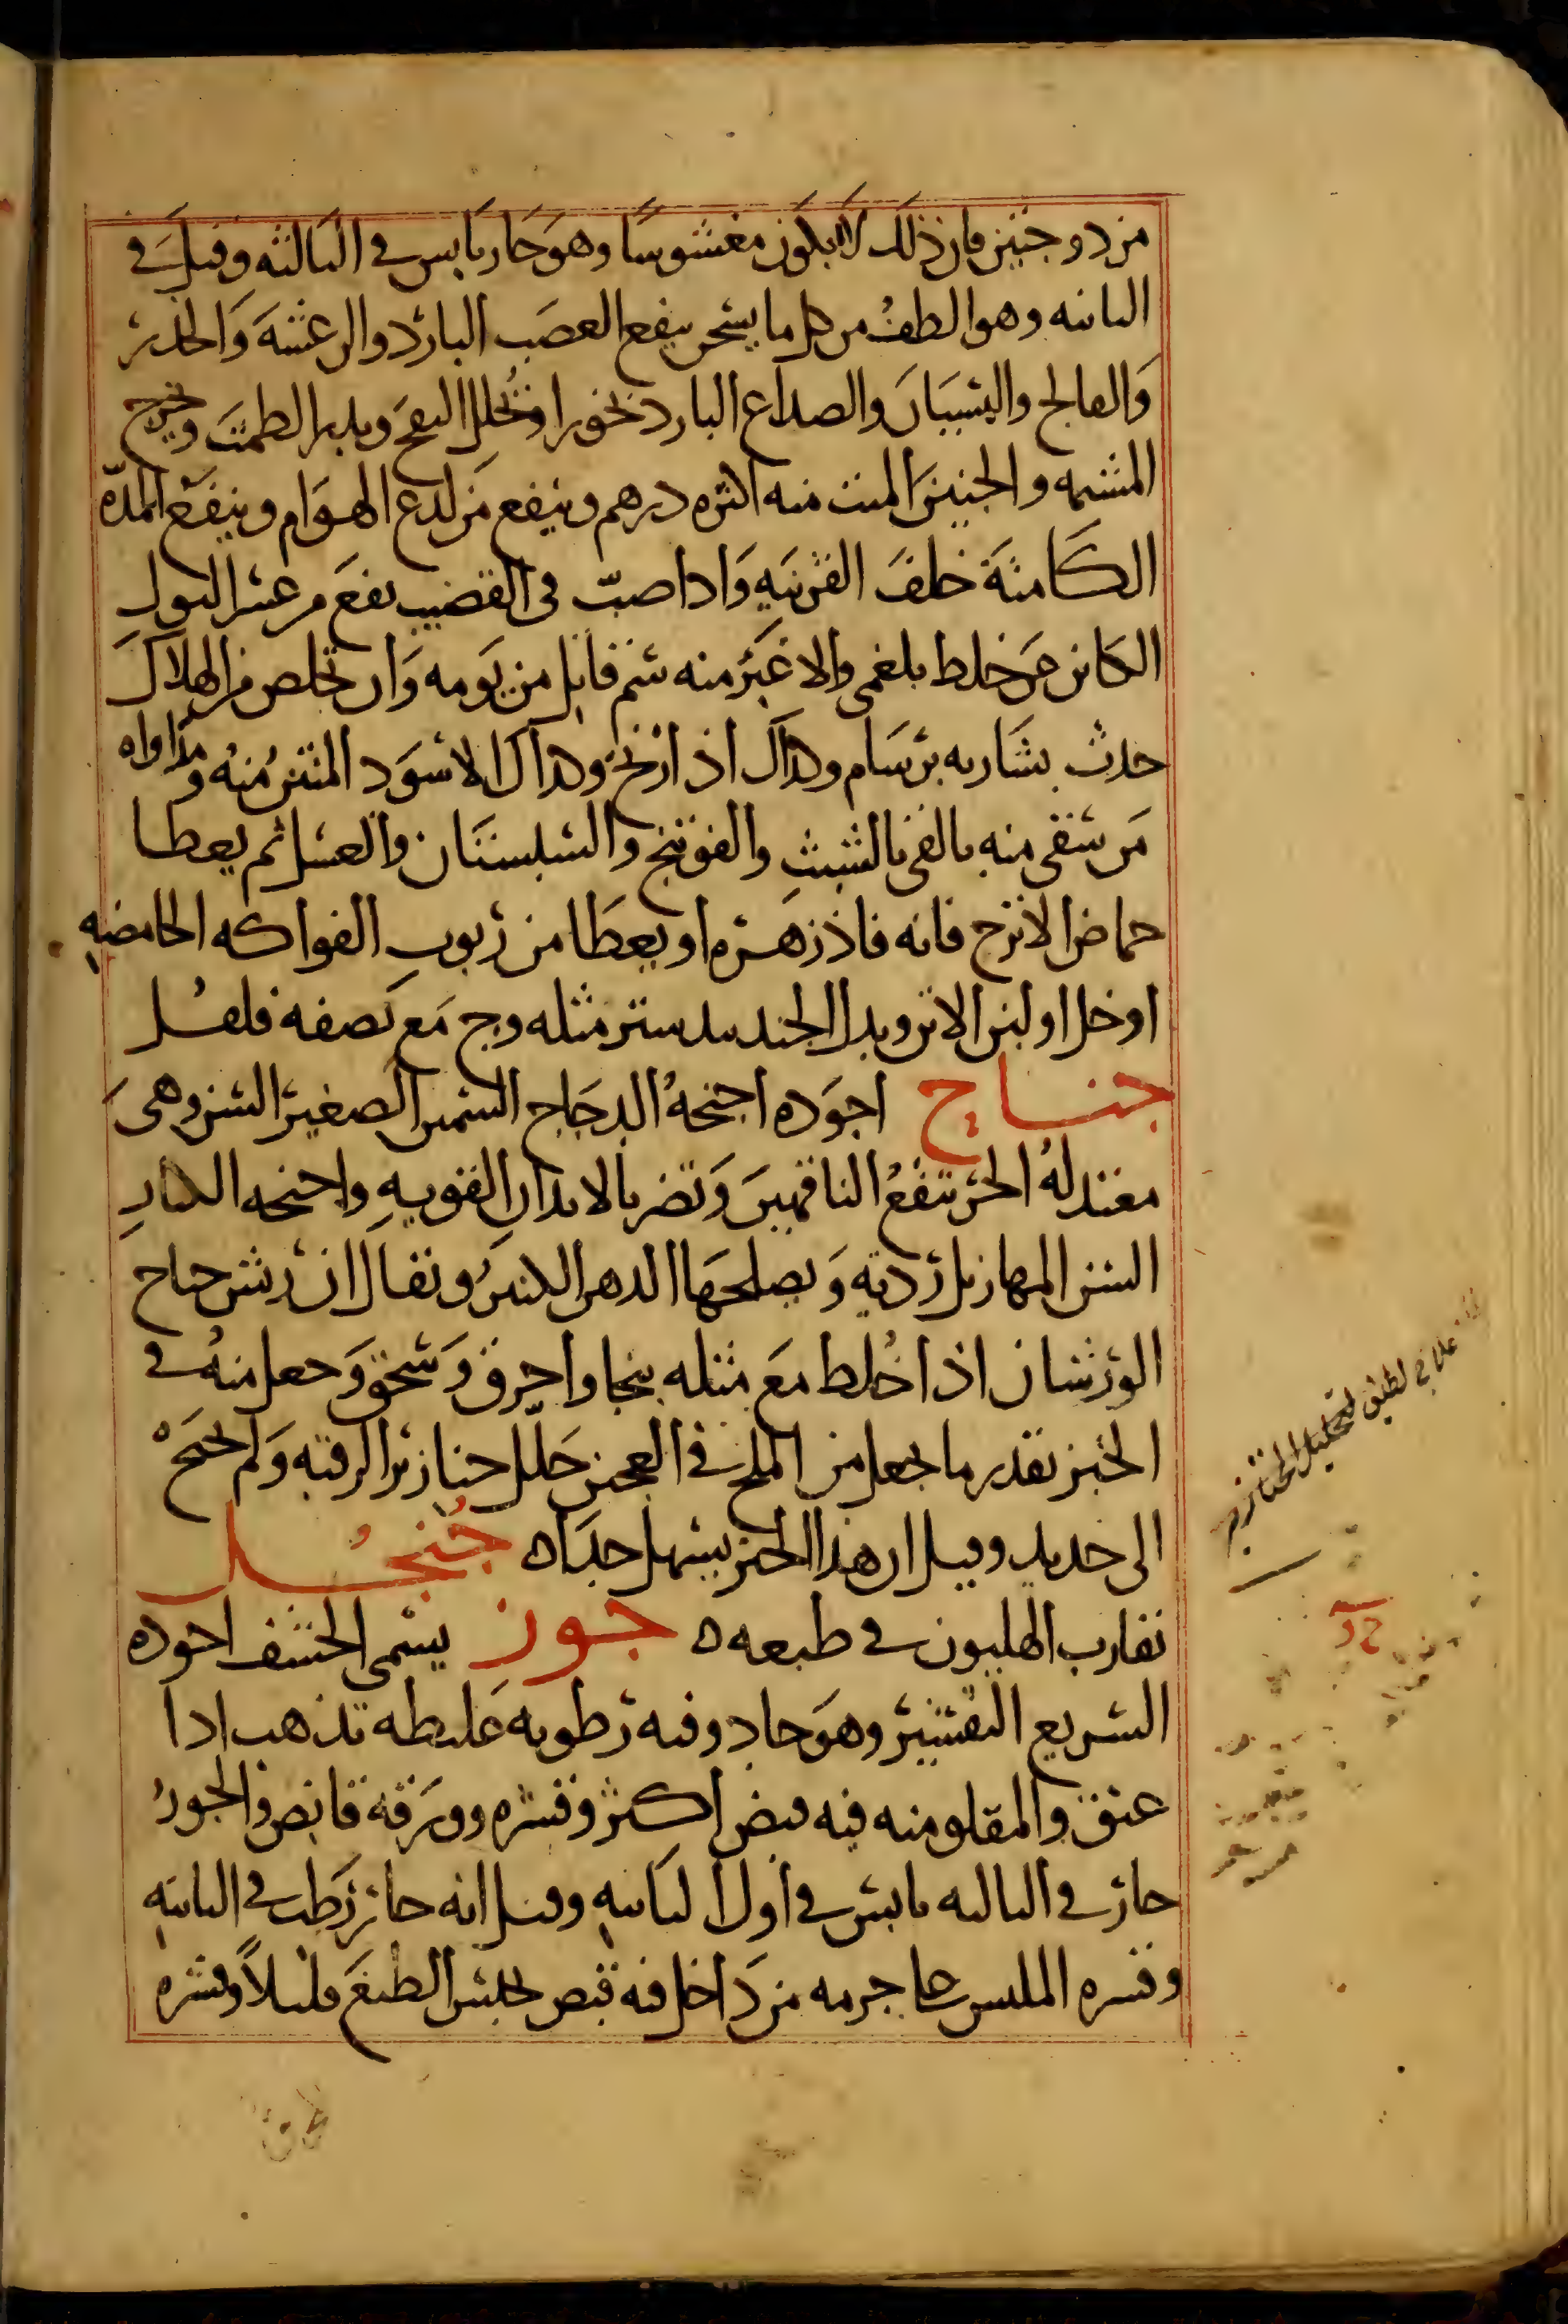 مزدوجتين فان ذلك لا يكون مغشوشا وهو حار يابس في الثالثه وقيل في
الثانيه وهو الطف من كل ما يسخن ينفع العصب البارد والرعشة والخدر
والفالج والنسيان والصداع البارد بخورا ويحلل النفخ ويدر الطمث ويخرج
المشيمه والجنين الميت منه اكثره درهم وينفع من لدغ الهوام وينفع المدّه
الكامنة خلف القرنيه واذا صبّ في القضيب نفع من عسر البول
الكائن عن خلط بلغمي والاغبر منه سم قاتل من يومه وان تخلص من الهلاك
حدث بشاربه برسام وكذلك اذا زنخ وكذلك الاسود المنتن منه ومداواه
من سقي منه بالقي بالشبث والفوتنج والسبستان والعسل ثم يعطا
حماض الاترج فانه فاذزهره او يعطا من ربوب الفواكه الحامضه
او خل او لبن الاتن وبدل الجندبيدستر مثله وج مع نصفه فلفل
جناح اجوده اجنحة الدجاج السمين الصغير السن وهي
معتدلة الحر تنفع الناقهين وتضر بالابدان القويه واجنحه الكبار
السن المهازيل رديه ويصلحها الدهن الكثير ويقال ان ريش جناح
الورشان اذا خلط مع مثله بنجا واحرق وسحق وجعل منه في
الخبز بقدر ما يجعل من الملح في العجين حلل خنازير الرقبه ولم يحتج
الى حديد وقيل ان هذا الخبز يسهل جدا ه جُنجُل
يقارب الهليون في طبعه ه جوز يسمى الخشف اجوده
السريع التقشير وهو حار وفيه رطوبه غليظه تذهب اذا
عتق والمقلو منه فيه قبض اكثر وقشره وورقه قابض والجوز
حار في الثالثه يابس في اول الثانيه وقيل انه حار رطب في الثانيه
وقشره الملبس على جرمه من داخل فيه قبض يحبس الطبع قليلا وقشره
علاج لطيف لتحليل الخنازير